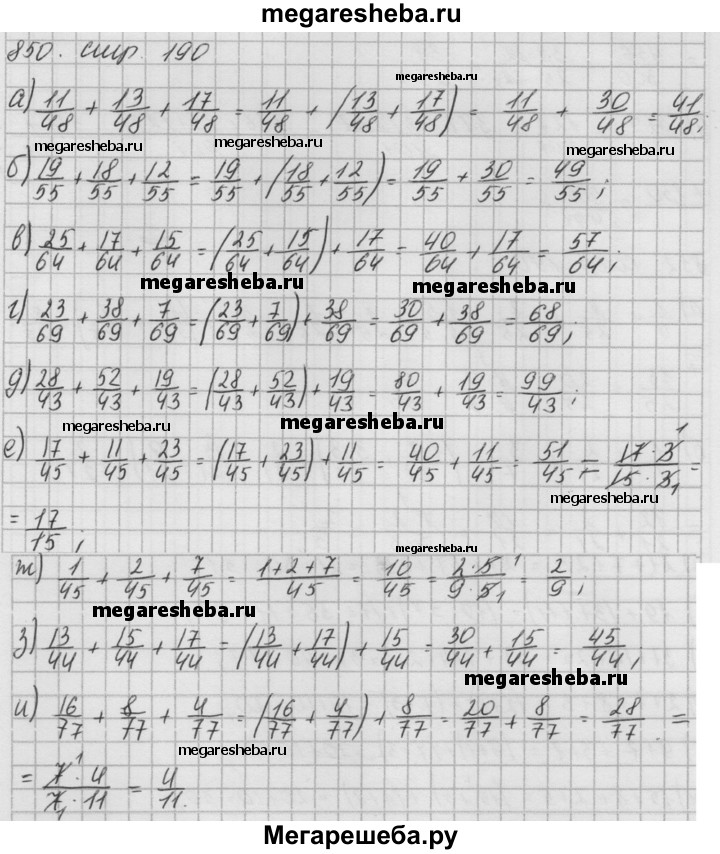 megaresheba.ru
850. стр. 190
megaresheba.ru
а) 11/48 + 13/48 + 17/48 = 11/48 + (13/48 + 17/48) = 11/48 + 30/48 = 41/48;
megaresheba.ru megaresheba.ru megaresheba.ru
б) 19/55 + 18/55 + 12/55 = 19/55 + (18/55 + 12/55) = 19/55 + 30/55 = 49/55;
в) 25/64 + 17/64 + 15/64 = (25/64 + 15/64) + 17/64 = 40/64 + 17/64 = 57/64;
megaresheba.ru megaresheba.ru
г) 23/69 + 38/69 + 7/69 = (23/69 + 7/69) + 38/69 = 30/69 + 38/69 = 68/69;
д) 28/43 + 52/43 + 19/43 = (28/43 + 52/43) + 19/43 = 80/43 + 19/43 = 99/43;
megaresheba.ru megaresheba.ru
е) 17/45 + 11/45 + 23/45 = (17/45 + 23/45) + 11/45 = 40/45 + 11/45 = 51/45 = 17·3 1/15·3 1 =
megaresheba.ru
= 17/15;
megaresheba.ru
ж) 1/45 + 2/45 + 7/45 = 1+2+7/45 = 10/45 = 2·5 1/9·5 1 = 2/9;
megaresheba.ru
з) 13/44 + 15/44 + 17/44 = (13/44 + 17/44) + 15/44 = 30/44 + 15/44 = 45/44;
megaresheba.ru
и) 16/77 + 8/77 + 4/77 = (16/77 + 4/77) + 8/77 = 20/77 + 8/77 = 28/77 =
megaresheba.ru
= 7 1·4/7 1·11 = 4/11.
Мегарешеба.ру